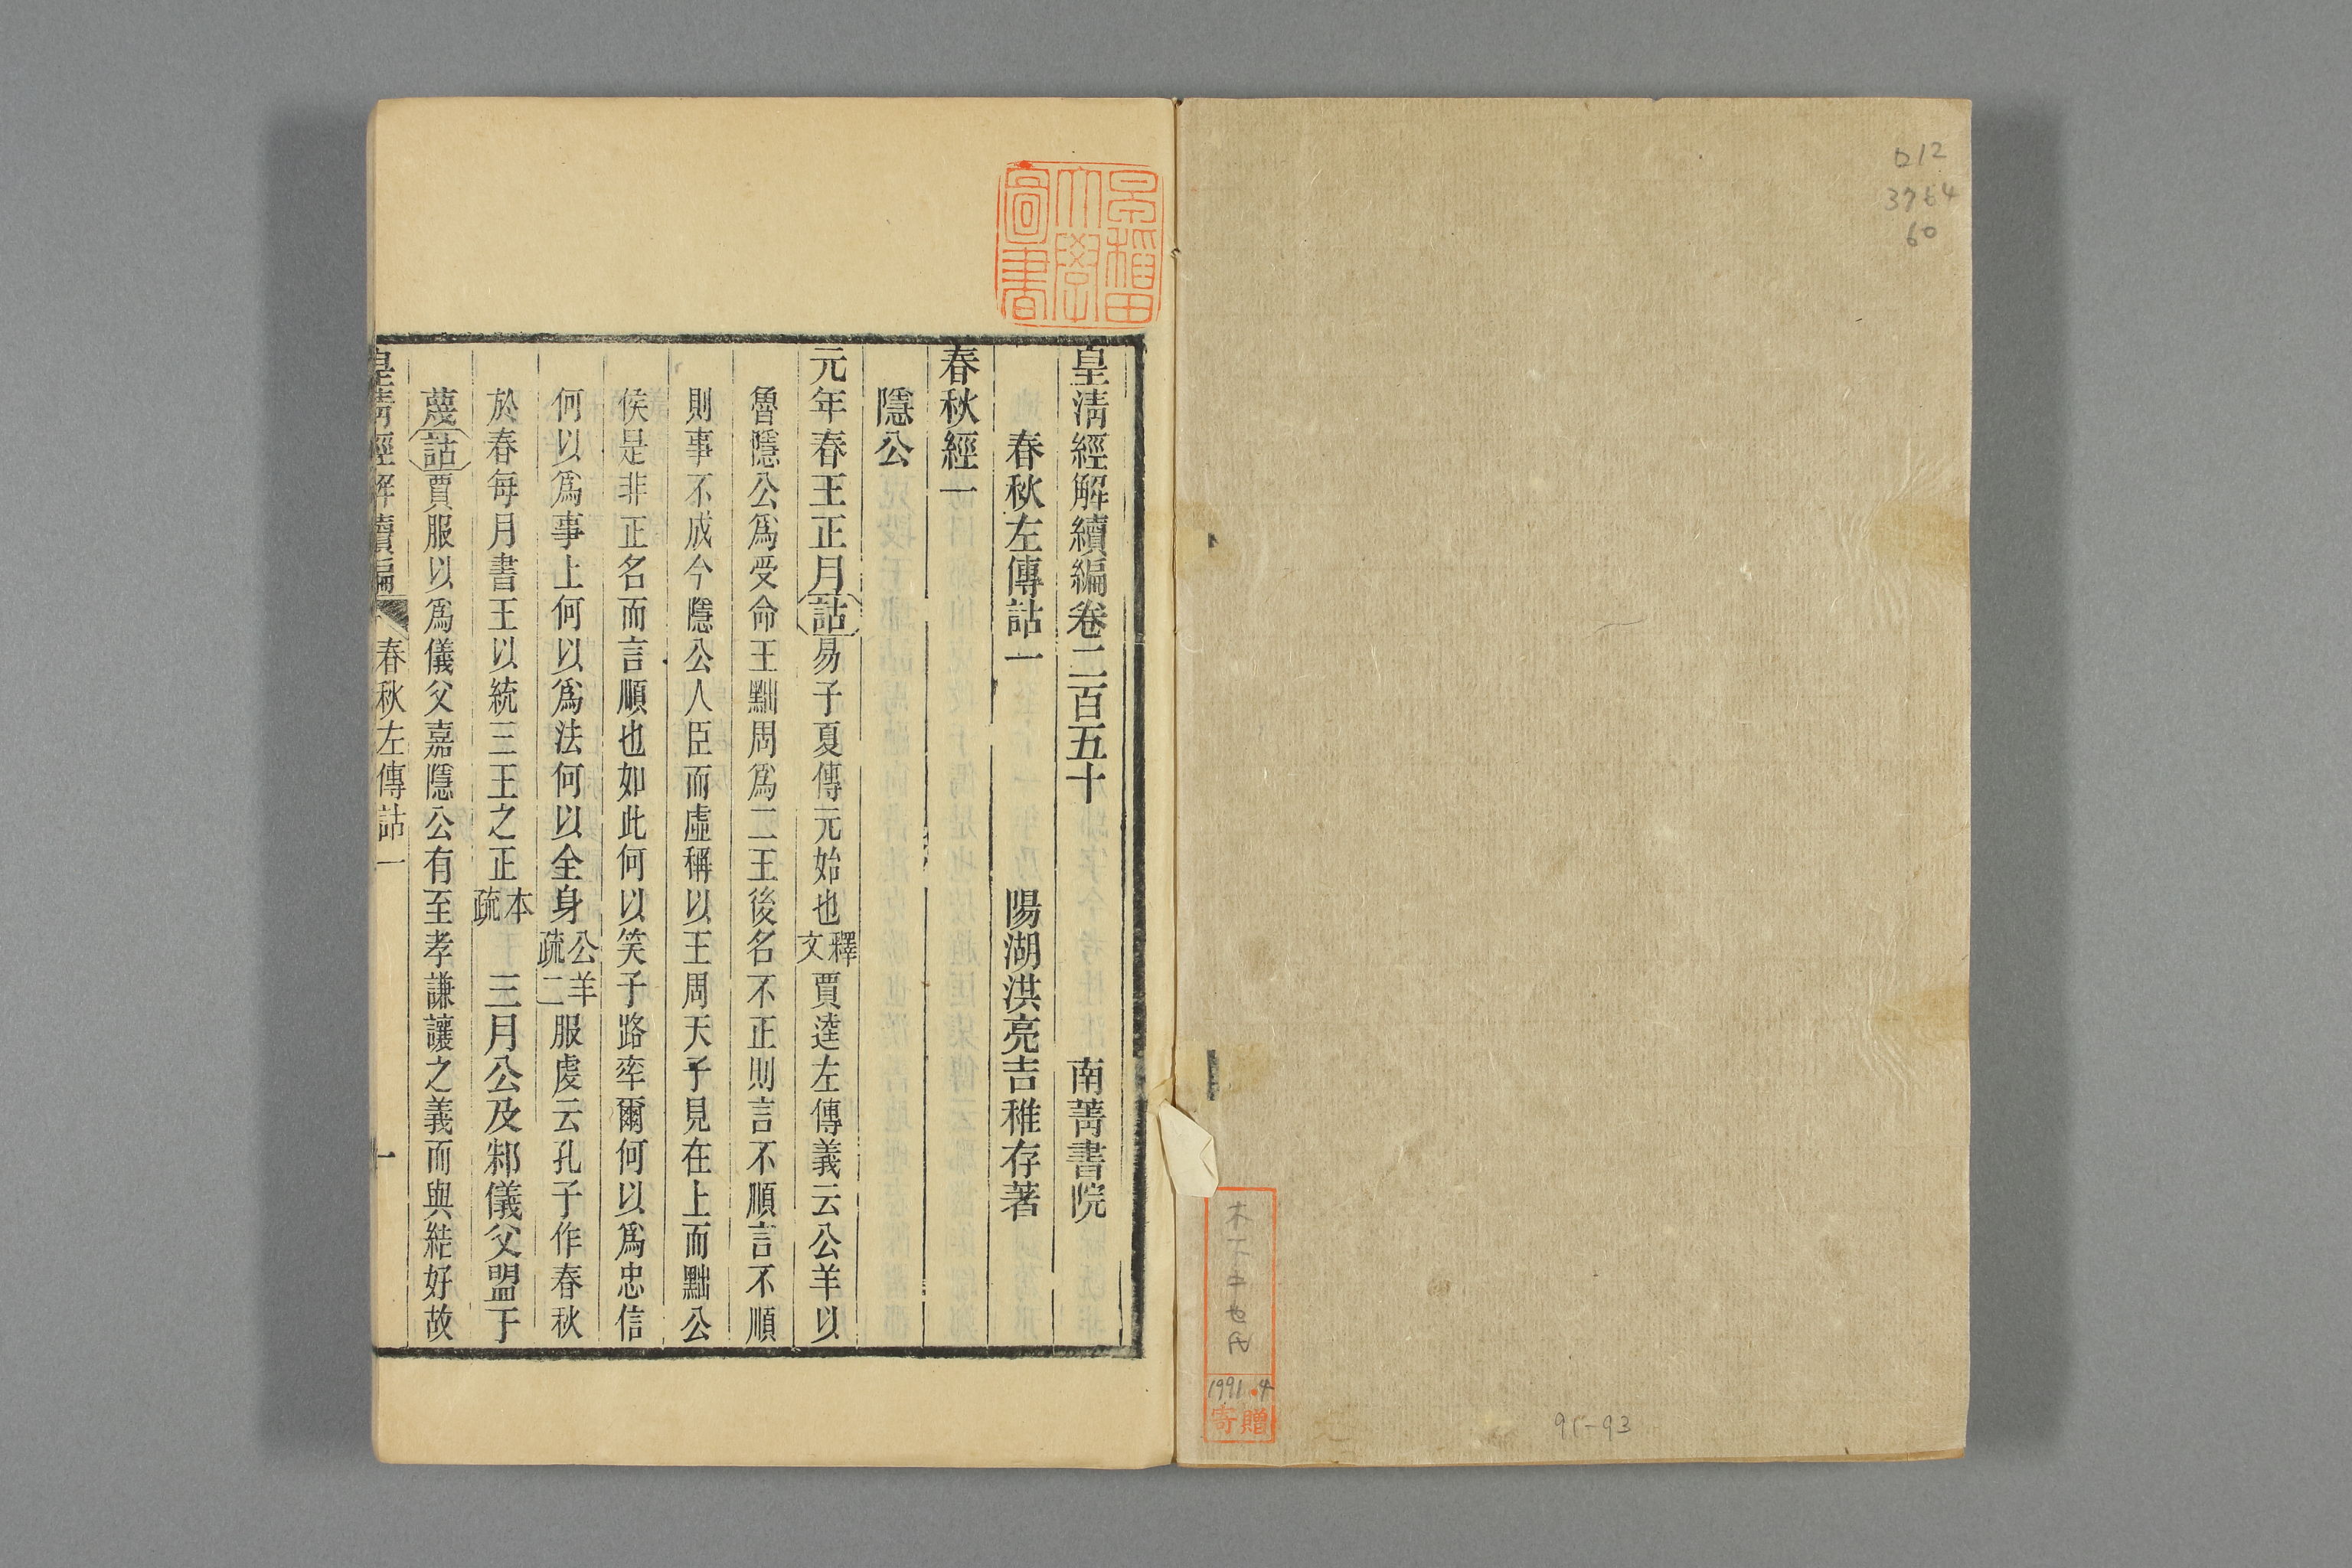 ロ12
3764
60
木下中也氏
1991.4
寄贈
91-93
早稲田大學圖書
皇清經解續編卷二百五十 南菁書院
春秋左傳詁一 陽湖洪亮吉稚存著
春秋經一
隱公
元年春王正月詁易子夏傳元始也釋文賈逵左傳義云公羊以
魯隱公爲受命王黜周爲二王後名不正則言不順言不順
則事不成今隱公人臣而虛稱以王周天子見在上而黜公
侯是非正名而言順也如此何以笑子路率爾何以爲忠信
何以爲事上何以爲法何以全身公羊疏二服虔云孔子作春秋
於春每月書王以統三王之正本疏 三月公及邾儀父盟于
蔑詁賈服以爲儀父嘉隱公有至孝謙讓之義而與結好故
皇清經解續編 春秋左傳詁一 一